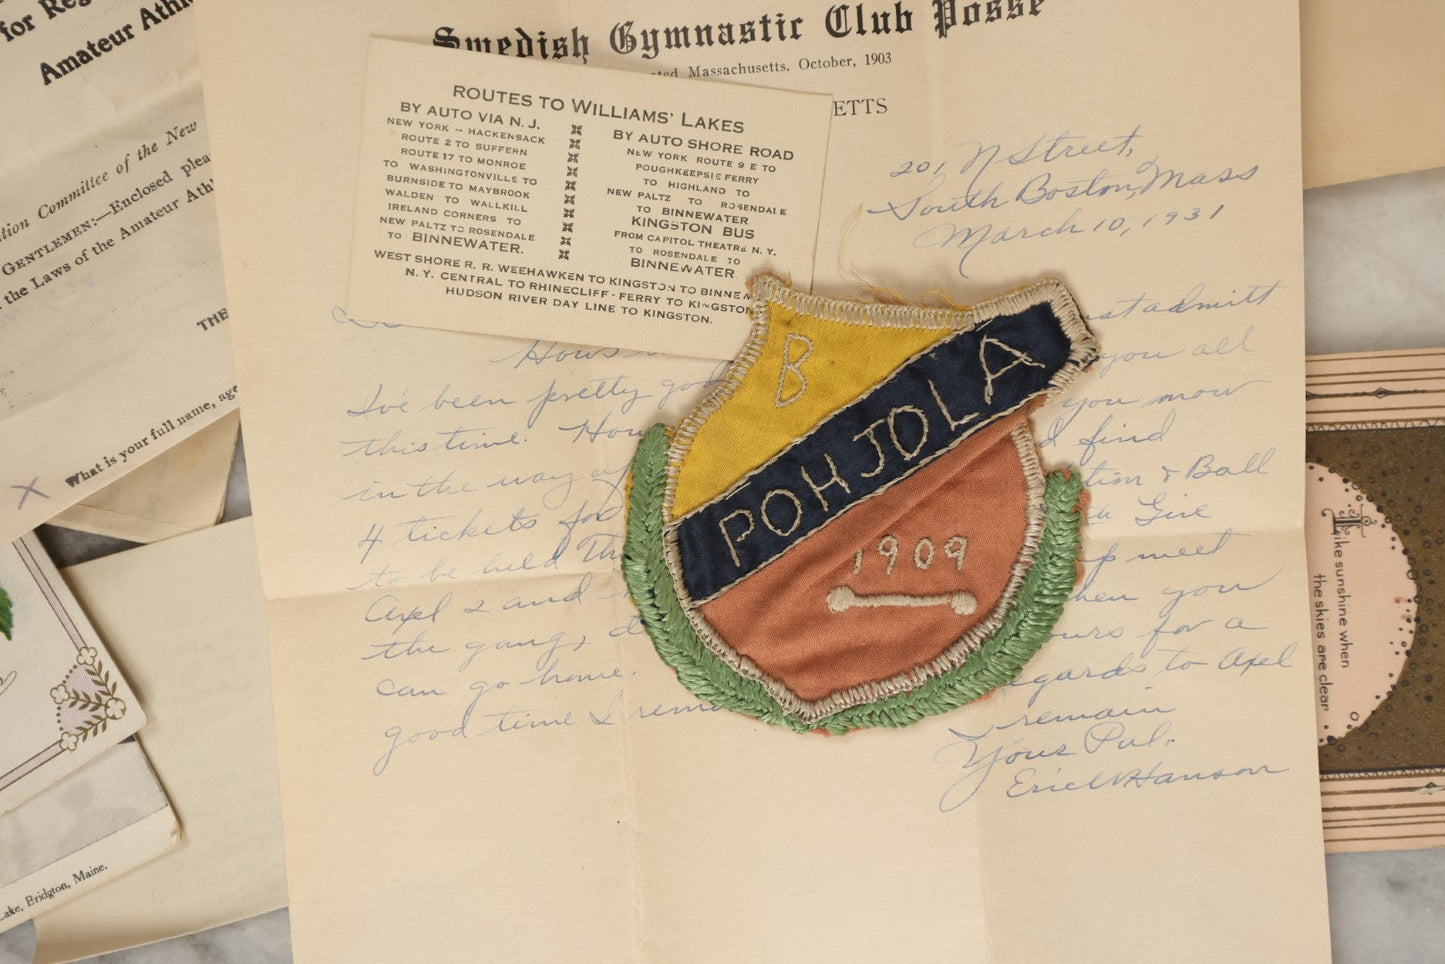 for Reg
Amateur Athl
ation Committee of the New
GENTLEMEN:—Enclosed plea
the Laws of the Amateur Ath
THE
What is your full name, age
X
Lake, Bridgton, Maine.
Swedish Gymnastic Club Posse
ated, Massachusetts, October, 1903
ETTS
ROUTES TO WILLIAMS' LAKES
BY AUTO VIA N. J.
NEW YORK -- HACKENSACK
ROUTE 2 TO SUFFERN
ROUTE 17 TO MONROE
TO WASHINGTONVILLE TO
BURNSIDE TO MAYBROOK
WALDEN TO WALLKILL
IRELAND CORNERS TO
NEW PALTZ TO ROSENDALE
TO BINNEWATER.
BY AUTO SHORE ROAD
NEW YORK ROUTE 9 E TO
POUGHKEEPSIE FERRY
TO HIGHLAND TO
NEW PALTZ TO ROSENDALE
TO BINNEWATER
KINGSTON BUS
FROM CAPITOL THEATRE N. Y.
TO ROSENDALE TO
BINNEWATER
WEST SHORE R. R. WEEHAWKEN TO KINGSTON TO BINNEW
N. Y. CENTRAL TO RHINECLIFF - FERRY TO KINGSTON
HUDSON RIVER DAY LINE TO KINGSTON.
201 N Street,
South Boston, Mass
March 10, 1931
ust admitt
How's you all
I've been pretty good you now
this time. How d find
in the way of tion & Ball
4 tickets for Give
to be held Th p meet
Axel 2 and hen you
the gang, d ours for a
can go home. egards to Axel
good time I rema remain
Your Pal.
Eric W Hanson
B
POHJOLA
1909
Like sunshine when
the skies are clear